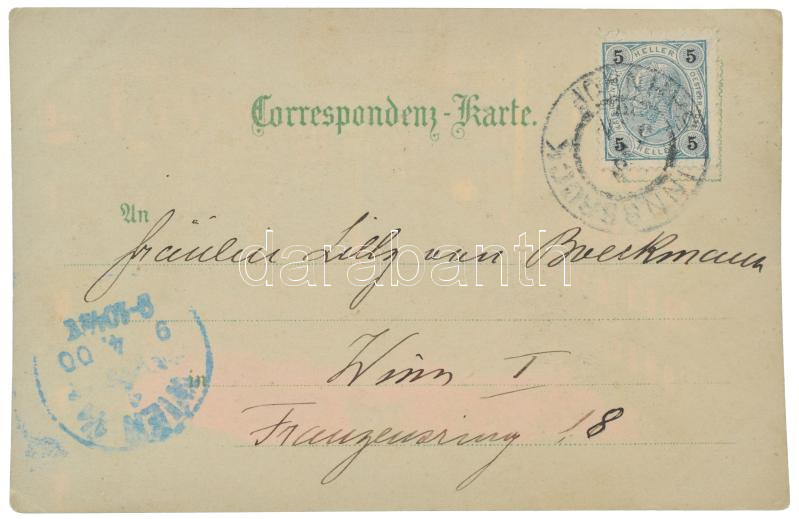 5 HELLER 5
5 HELLER 5
INNSBRUCK
Correspondenz-Karte.
An
Fräulein Lilly von Boeckmann
darabanth
in Wien I
Franzensring 18
9
4. 00
WIEN